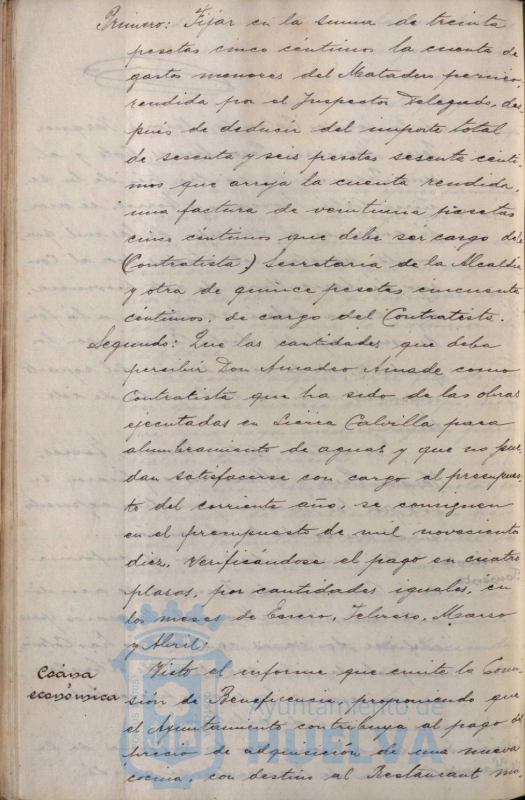 Primero: Fijar en la suma de treinta
pesetas cinco céntimos la cuenta de
gastos menores del Matadero
rendida por el Inspector Delegado, des
pués de deducir del importe total
de sesenta y seis pesetas sesenta cénti-
mos que arroja la cuenta rendida,
una factura de veintiuna pesetas
cinco céntimos que debe ser cargo del
(Contratista) Secretaría de la Alcaldía
y otra de quince pesetas cincuenta
céntimos, de cargo del Contratista.
Segundo: Que las cantidades que deba
percibir Don Amadeo como
Contratista que ha sido de las obras
ejecutadas en Sierra Calvilla para
alumbramiento de aguas y que no pue-
dan satisfacerse con cargo al presupues-
to del corriente año, se consignen
en el presupuesto de mil novecientos
diez, verificándose el pago en cuatro
plazos, por cantidades iguales, en
los meses de Enero, Febrero, Marzo
y Abril.
Cocina
económica
Visto el informe que emite la Comi-
sión de Beneficencia proponiendo que
el Ayuntamiento contribuya al pago del
precio de adquisición de una nueva
cocina, con destino al Restaurant
Ayuntamiento de
HUELVA